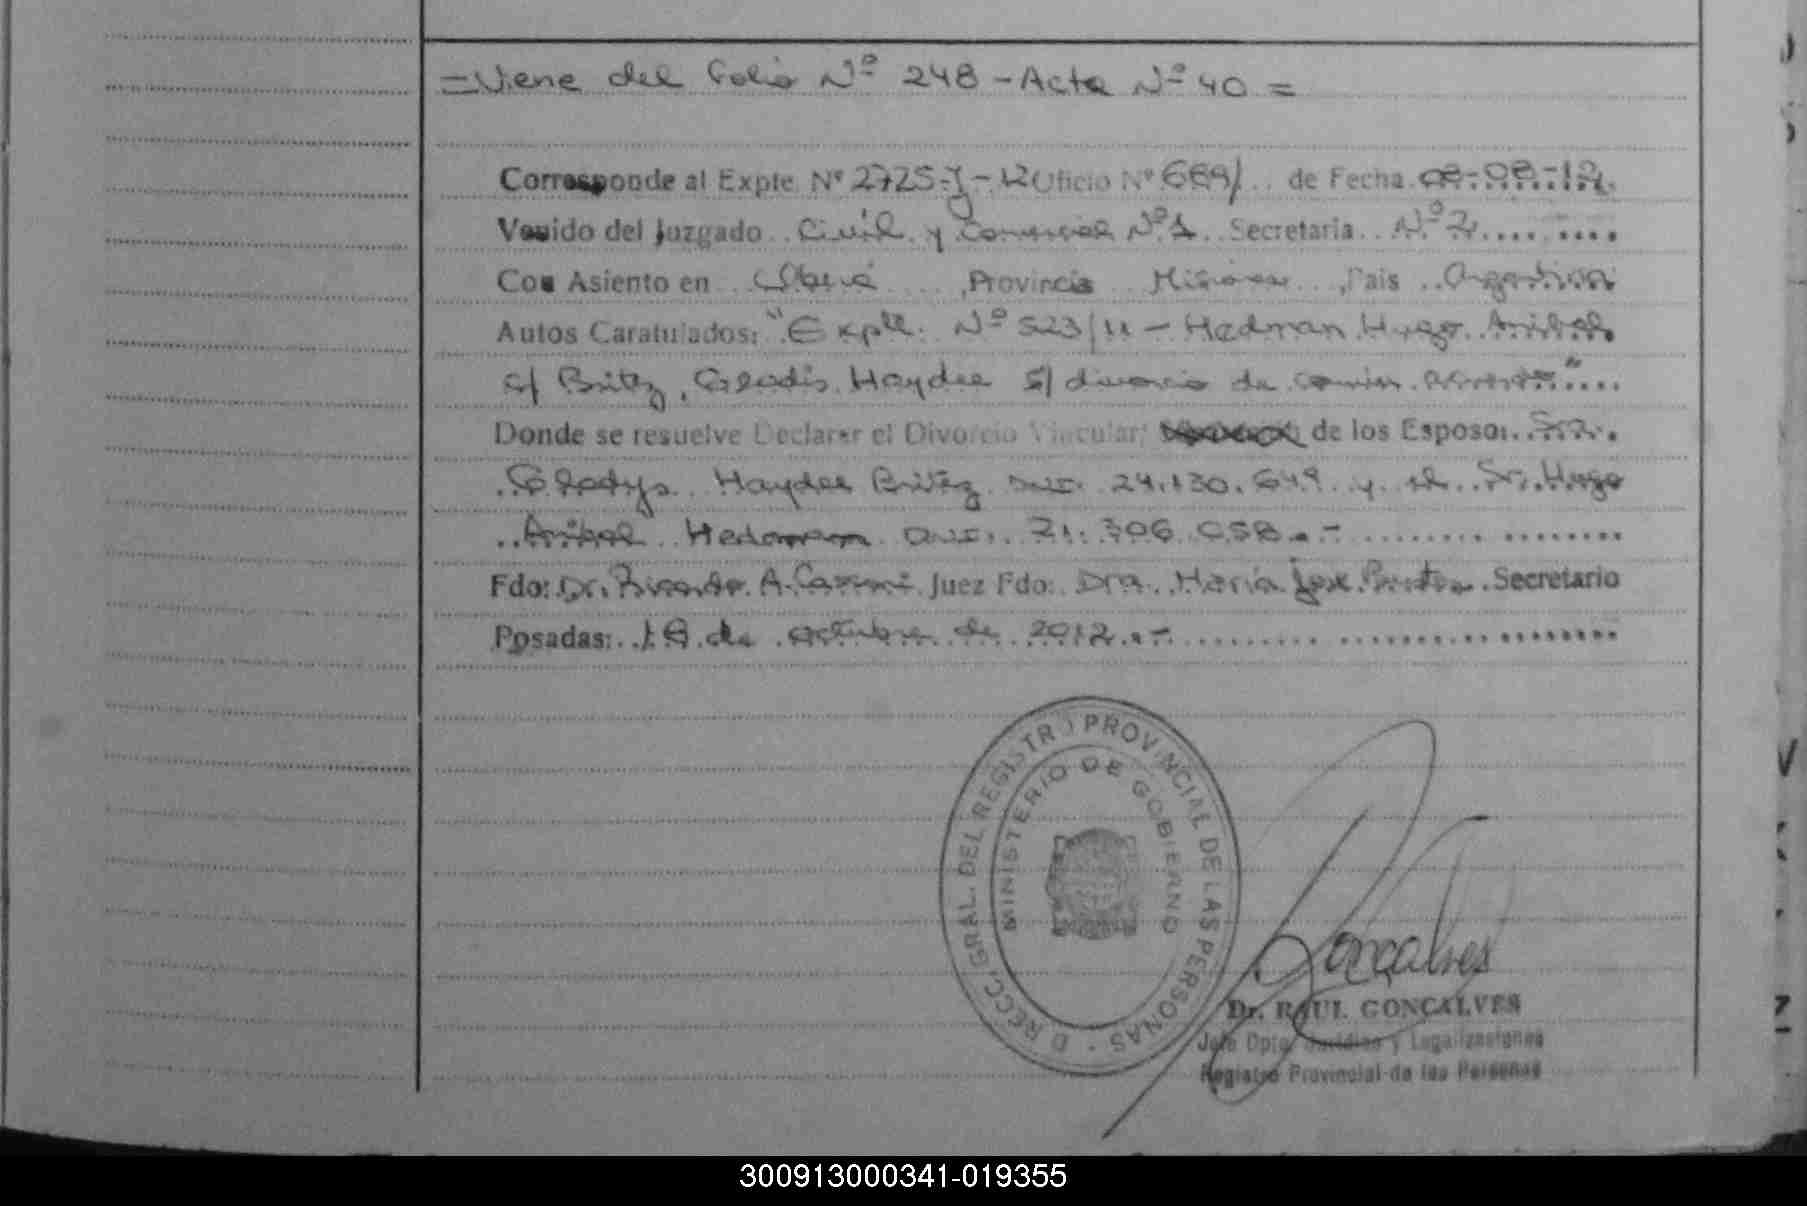 =Viene del Folio Nº 248 - Acta Nº 40 =
Corresponde al Expte. Nº 2725-J-12 Oficio Nº 669/ de Fecha 08-08-12
Venido del Juzgado Civil y Comercial Nº 1 Secretaria Nº 2
Con Asiento en Oberá, Provincia Misiones, Pais Argentina
Autos Caratulados: "Expte. Nº 523/11 - Hedman Hugo Anibal
c/ Britez, Gladis Haydee s/ divorcio de común acuerdo"
Donde se resuelve Declarar el Divorcio Vincular; de los Esposos Sra.
Gladys Haydee Britez DNI. 24.130.649 y el Sr. Hugo
Anibal Hedman DNI. 21.306.058.-
Fdo: Dr. Ricardo A. Juez Fdo: Dra. María José Secretario
Posadas: 18 de octubre de 2012.-
DIRECC. GRAL. DEL REGISTRO PROVINCIAL DE LAS PERSONAS
MINISTERIO DE GOBIERNO
Gonçalves
Dr. RAUL GONÇALVES
Jefe Dpto. Jurídico y Legalizaciones
Registro Provincial de las Personas
300913000341-019355